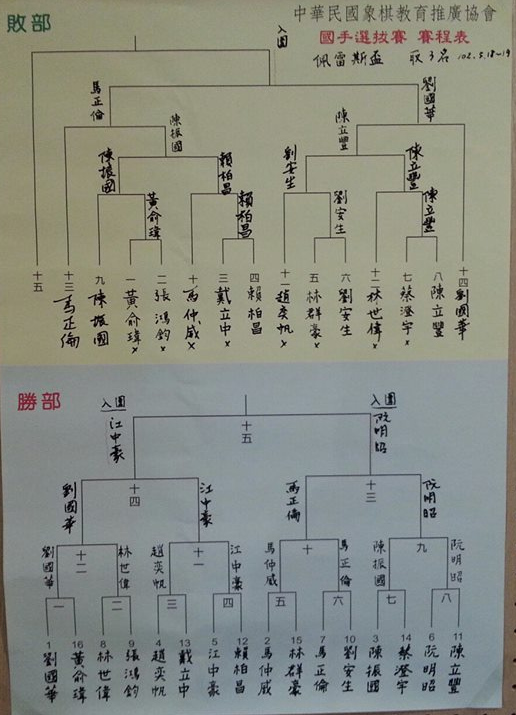 敗部
中華民國象棋教育推廣協會
國手選拔賽 賽程表
佩雷斯盃 取3名 102.5.18~19
入圍
馬正倫 劉國華
陳振國 陳立豐
陳振國 賴柏昌 劉安生 陳立豐
黃俞瑋 賴柏昌 劉安生 陳立豐
十五
十三 馬正倫
九 陳振國
一 黃俞瑋 x
二 張鴻鈞 x
十 馬仲威 x
三 戴立中 x
四 賴柏昌
十一 趙奕帆 x
五 林群豪 x
六 劉安生
十二 林世偉 x
七 蔡澄宇 x
八 陳立豐
十四 劉國華
勝部
入圍 入圍
江中豪 十五 阮明昭
劉國華 十四 江中豪 馬正倫 十三 阮明昭
劉國華 十二 林世偉 趙奕帆 十一 江中豪 馬仲威 十 馬正倫 陳振國 九 阮明昭
一 二 三 四 五 六 七 八
1 劉國華
16 黃俞瑋
8 林世偉
9 張鴻鈞
4 趙奕帆
13 戴立中
5 江中豪
12 賴柏昌
2 馬仲威
15 林群豪
7 馬正倫
10 劉安生
3 陳振國
14 蔡澄宇
6 阮明昭
11 陳立豐